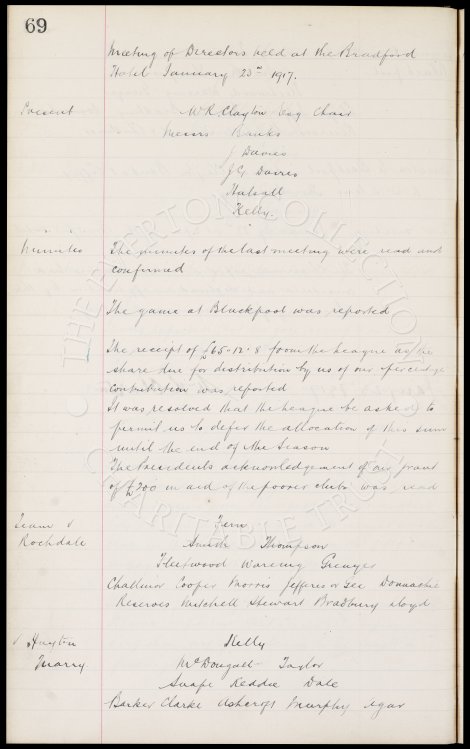 69
Meeting of Directors held at the Bradford
Hotel January 23rd 1917.
Present W R Clayton Esq Chair
Messrs Banks
J Davies
J G Davies
Halsall
Kelly.
Minutes The minutes of the last meeting were read and
confirmed
The game at Blackpool was reported
The receipt of £65-12-8 from the League as the
share due for distribution by us of our percentage
contribution was reported
It was resolved that the League be asked to
permit us to defer the allocation of this sum
until the end of the Season
The Presidents acknowledgement of our grant
of £200 in aid of the poorer clubs was read
Team v Fern
Rochdale Smith Thompson
Fleetwood Wareing Grenyer
Challinor Cooper Morris Jefferis or Lee Donnachie
Reserves Mitchell Stewart Bradbury Lloyd
v Kelly
Marry McDougall Taylor
Snape Keddie Dale
Barker Clarke Ashcroft Murphy Agar
THE EVERTON COLLECTION
CHARITABLE TRUST